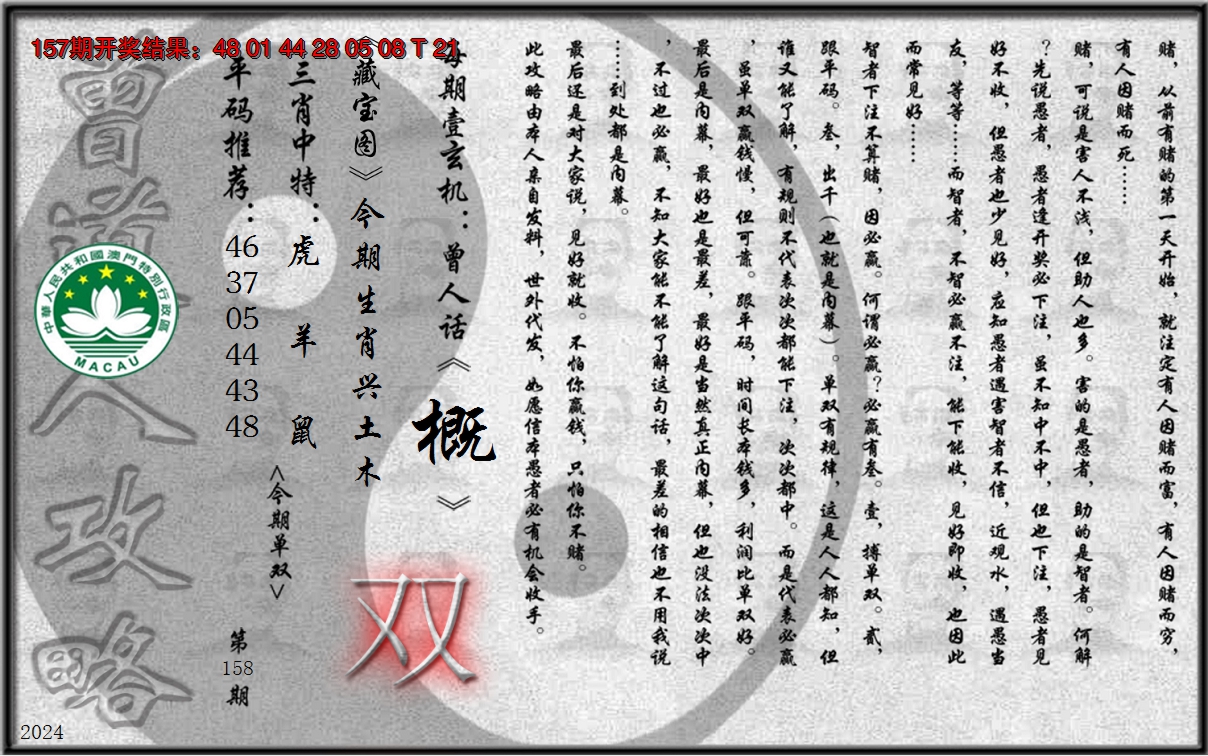 157期开奖结果：48 01 44 28 05 08 T 21
赌，从前有赌的第一天开始，就注定有人因赌而富，有人因赌而穷，
有人因赌而死……
赌，可说是害人不浅，但助人也多。害的是愚者，助的是智者。何解
？先说愚者，愚者逢开奖必下注，虽不知中不中，但也下注，愚者见
好不收，但愚者也少见好，应知愚者遇害智者不信，近观水，遇愚当
友，等等……而智者，不智必赢不注，能下能收，见好即收，也因此
而常见好……
智者下注不算赌，因必赢。何谓必赢？必赢有叁。壹，搏单双。贰，
跟平码。叁，出千（也就是内幕）。单双有规律，这是人人都知，但
谁又能了解，有规则不代表次次都能下注，次次都中。而是代表必赢
，虽单双赢钱慢，但可靠。跟平码，时间长本钱多，利润比单双好。
最后是内幕，最好也是最差，最好是当然真正内幕，但也没法次次中
，不过也必赢，不知大家能不能了解这句话，最差的相信也不用我说
……到处都是内幕。
最后还是对大家说，见好就收。不怕你赢钱，只怕你不赌。
此攻略由本人亲自发料，世外代发，如愿信本愚者必有机会收手。
每期壹玄机：曾人话《概》
《藏宝图》今期生肖兴土木
三肖中特：虎 羊 鼠
平码推荐：46 37 05 44 43 48
<今期单双>
双
第158期
曾道人攻略
中華人民共和國澳門特別行政區
MACAU
2024